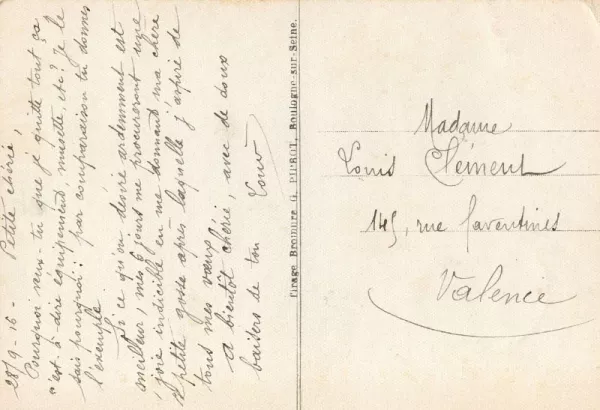 28/9-16- Petite chérie,
Pourquoi veux tu que je quitte tout ça
c'est-à-dire équipement, musette, etc? Je le
sais pourquoi: par comparaison tu donnes
l'exemple.
Si ce qu'on désire ardemment est
meilleur, mes 6 jours me procureront une
joie indicible en me donnant ma chère
petite gosse après laquelle j'aspire de
tous mes vœux.
A bientôt chérie, avec de doux
baisers de ton Louis
Tirage Bromure G. PIPROT, Boulogne-sur-Seine.
Madame
Louis Clément
145, rue Faventines
Valence